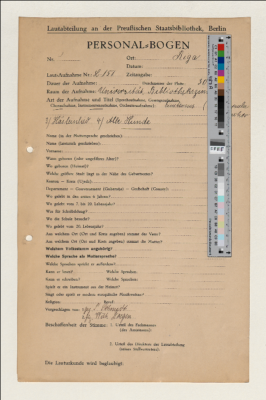 Lautabteilung an der Preußischen Staatsbibliothek, Berlin
PERSONAL-BOGEN
Nr. Ort: Riga
Datum:
Laut-Aufnahme Nr. Zeitangabe:
Dauer der Aufnahme: Durchmesser der Platte: 30
Raum der Aufnahme: Universität
Art der Aufnahme und Titel (Sprechaufnahme, Gesangsaufnahme,
Choraufnahme, Instrumentenaufnahme, Orchesteraufnahme):
2) Alte Hunde
Name (in der Muttersprache geschrieben):
Name (lateinisch geschrieben):
Vorname:
Wann geboren (oder ungefähres Alter)?
Wo geboren (Heimat)?
Welche größere Stadt liegt in der Nähe des Geburtsortes?
Kanton — Kreis (Ujedz):
Departement — Gouvernement (Gubernija) — Grafschaft (County):
Wo gelebt in den ersten 6 Jahren?
Wo gelebt vom 7. bis 20. Lebensjahr?
Was für Schulbildung?
Wo die Schule besucht?
Wo gelebt vom 20. Lebensjahr?
Aus welchem Ort (Ort und Kreis angeben) stammt der Vater?
Aus welchem Ort (Ort und Kreis angeben) stammt die Mutter?
Welchem Volksstamm angehörig?
Welche Sprache als Muttersprache?
Welche Sprachen spricht er außerdem?
Kann er lesen? Welche Sprachen:
Kann er schreiben? Welche Sprachen:
Spielt er ein Instrument aus der Heimat?
Singt oder spielt er modern europäische Musikweisen?
Religion: Beruf:
Vorgeschlagen von:
Beschaffenheit der Stimme: 1. Urteil des Fachmannes
(des Assistenten):
2. Urteil des Direktors der Lautabteilung
(seines Stellvertreters):
Die Lauturkunde wird beglaubigt: